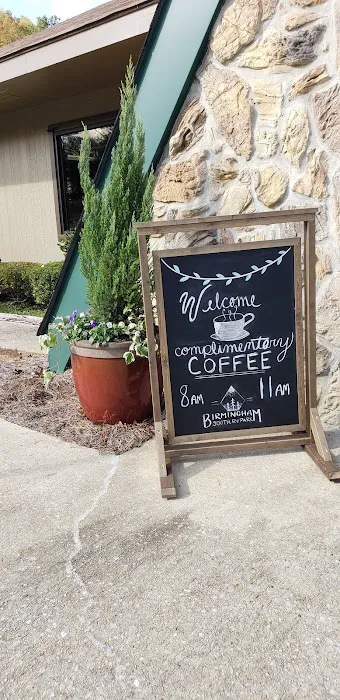 Welcome
complimentary
COFFEE
8AM - 11AM
BIRMINGHAM
SOUTH RV PARK